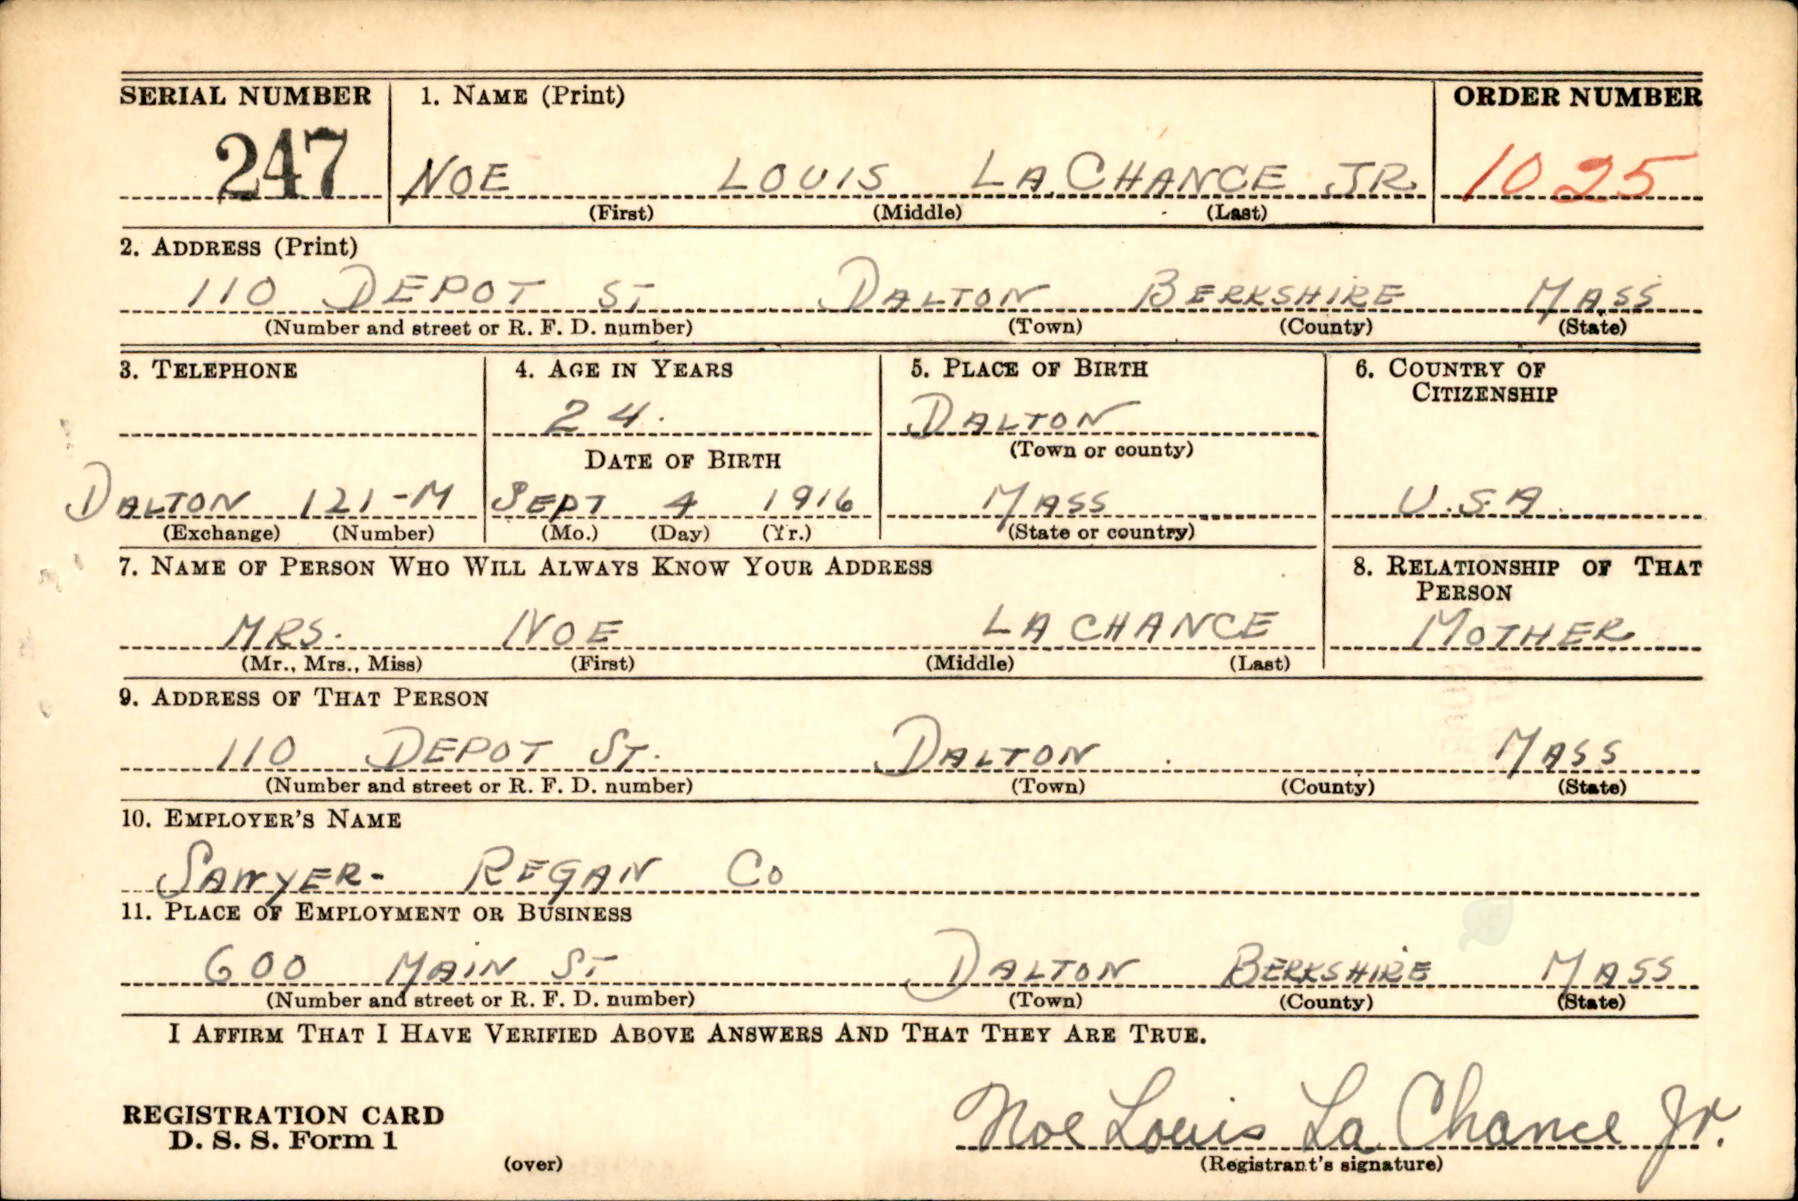 SERIAL NUMBER 1. NAME (Print) ORDER NUMBER
247 NOE LOUIS LA CHANCE JR. 1025
(First) (Middle) (Last)
2. ADDRESS (Print)
110 DEPOT ST DALTON BERKSHIRE MASS
(Number and street or R. F. D. number) (Town) (County) (State)
3. TELEPHONE 4. AGE IN YEARS 5. PLACE OF BIRTH 6. COUNTRY OF
CITIZENSHIP
24. DALTON
(Town or county)
DATE OF BIRTH
DALTON 121-M SEPT 4 1916 MASS U.S.A.
(Exchange) (Number) (Mo.) (Day) (Yr.) (State or country)
7. NAME OF PERSON WHO WILL ALWAYS KNOW YOUR ADDRESS 8. RELATIONSHIP OF THAT
PERSON
MRS. NOE LA CHANCE MOTHER
(Mr., Mrs., Miss) (First) (Middle) (Last)
9. ADDRESS OF THAT PERSON
110 DEPOT ST. DALTON MASS
(Number and street or R. F. D. number) (Town) (County) (State)
10. EMPLOYER'S NAME
SAWYER- REGAN CO
11. PLACE OF EMPLOYMENT OR BUSINESS
600 MAIN ST DALTON BERKSHIRE MASS
(Number and street or R. F. D. number) (Town) (County) (State)
I AFFIRM THAT I HAVE VERIFIED ABOVE ANSWERS AND THAT THEY ARE TRUE.
REGISTRATION CARD
D. S. S. Form 1 Noe Louis La Chance Jr.
(over) (Registrant's signature)